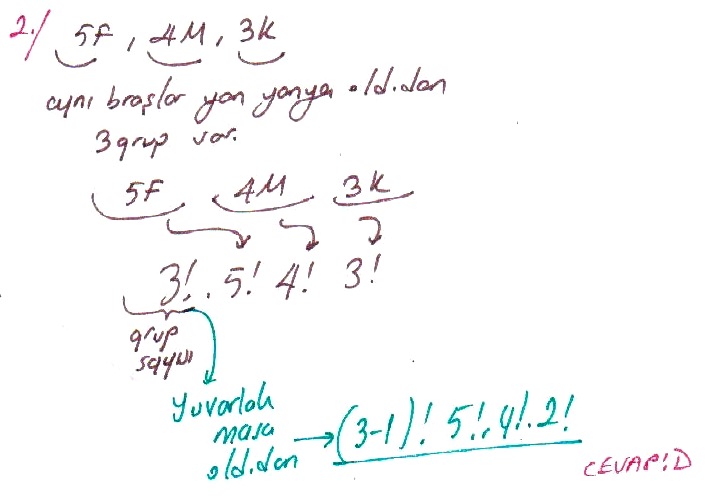 2./ 5F, 4M, 3K
aynı braşlar yan yanya old.dan
3 grup var.
5F 4M 3K
3!. 5! 4! 3!
grup
sayısı
Yuvarlak
masa
old.dan → (3-1)! 5!. 4!. 2!
CEVAP: D